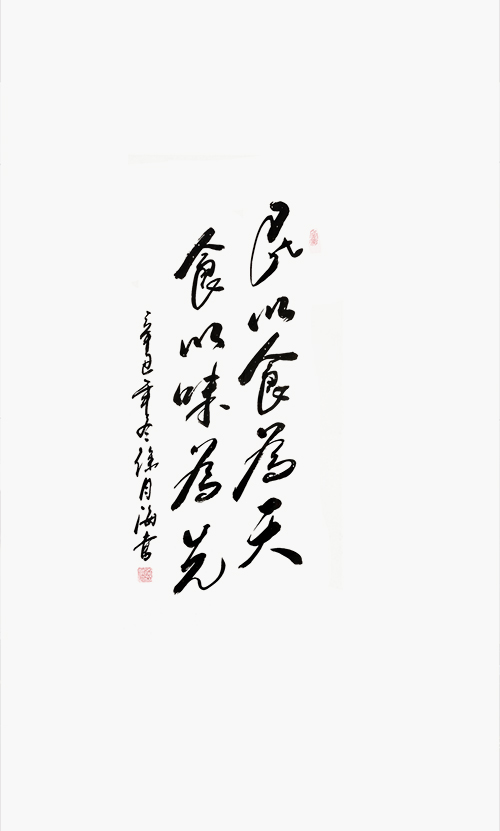 民以食為天
食以味為先
辛丑年冬徐月海書